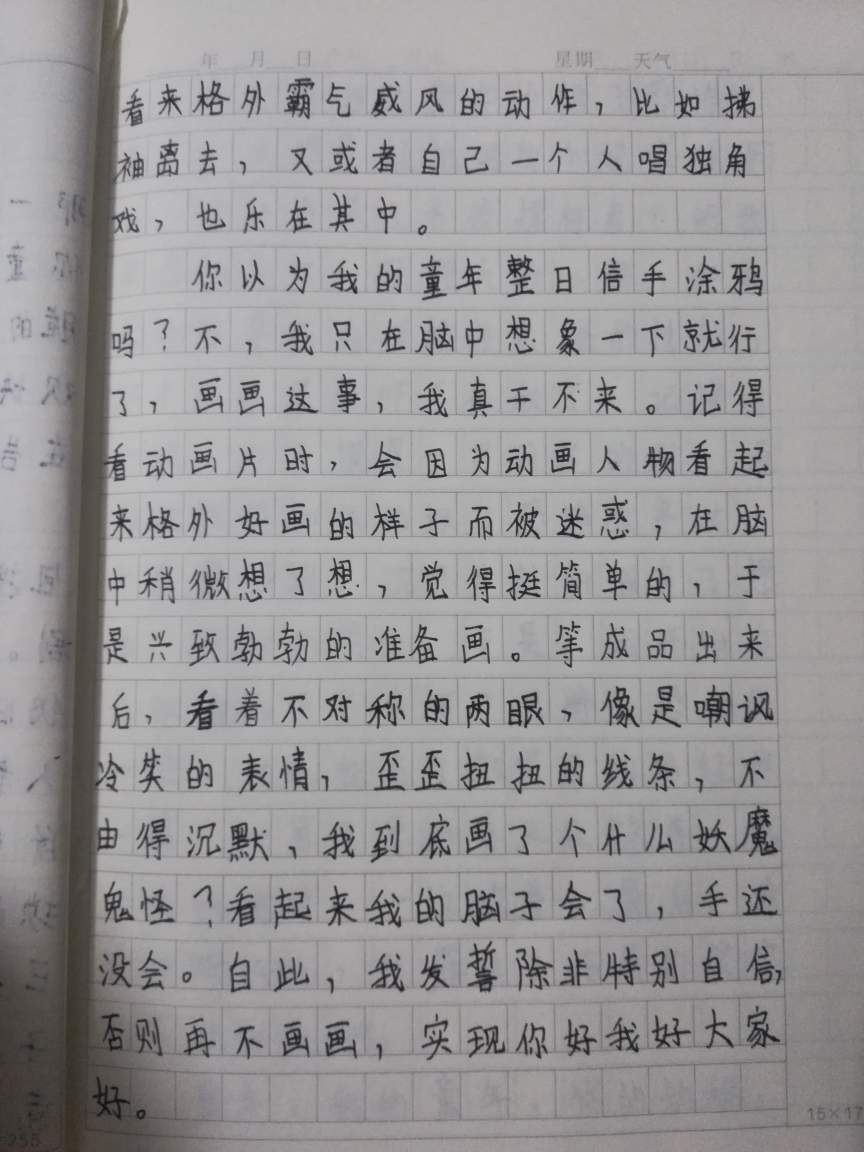 年 月 日 星期 天气
看来格外霸气威风的动作，比如拂
袖离去，又或者自己一个人唱独角
戏，也乐在其中。
你以为我的童年整日信手涂鸦
吗？不，我只在脑中想象一下就行
了，画画这事，我真干不来。记得
看动画片时，会因为动画人物看起
来格外好画的样子而被迷惑，在脑
中稍微想了想，觉得挺简单的，于
是兴致勃勃的准备画。等成品出来
后，看着不对称的两眼，像是嘲讽
冷笑的表情，歪歪扭扭的线条，不
由得沉默，我到底画了个什么妖魔
鬼怪？看起来我的脑子会了，手还
没会。自此，我发誓除非特别自信，
否则再不画画，实现你好我好大家
好。
15×17
255